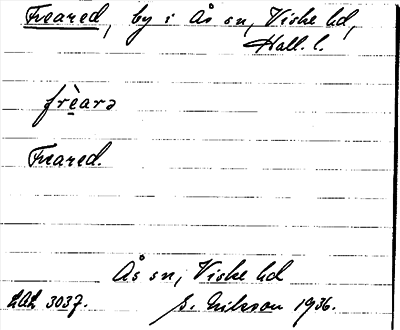 Frearred, by i Ås sn, Viske hd,
Hall. l.
frèarə
Frearred.
Ås sn, Viske hd
LAL 3037. S. Nilsson 1936.